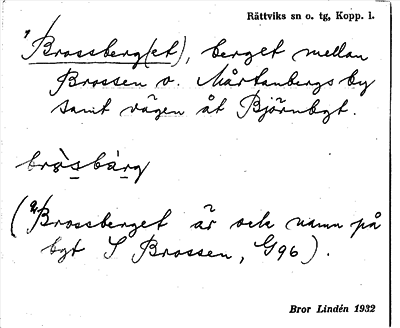 Rättviks sn o. tg, Kopp. l.
Brossberg(et), berget mellan
Brossen o. Mårtanbergs by
samt vägen åt Björnbgt.
bròsbàrg
(Brossberget är och namn på
bgt S Brossen, G96).
Bror Lindén 1932